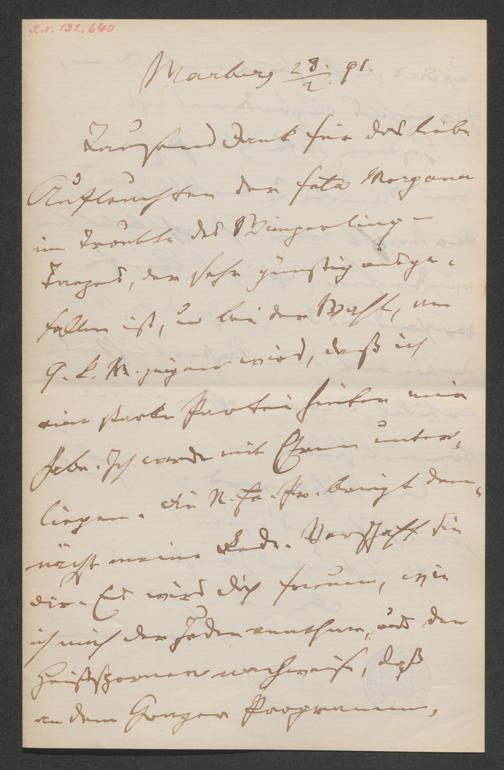 I.N. 132.640
Marburg 28./2. 91.
Tausend Dank für das liebe
Aufleuchten der fata Morgana
im Trouble des
Tages, der sehr günstig ausge-
fallen ist, u bei der Wahl, am
9. k. M. zeigen wird, daß ich
eine starke Partei hinter mir
habe. Ich werde mit Ehren unter-
liegen. Die N. fr. Pr. bringt dem-
nächst meine Rede. Verschaff sie
dir. Es wird dich freuen, wie
ich mich der Juden annehme, und den
Heißspornen nachweise, daß
an dem Grazer Programm,